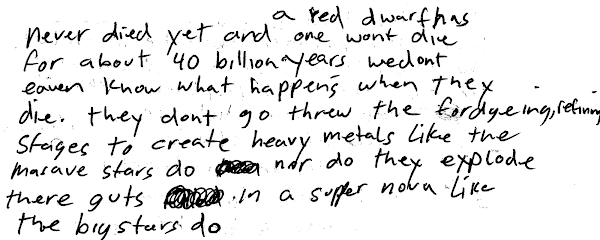 a red dwarf has
never died yet and one wont die
for about 40 billion years wedont
eaven know what happens when they
die. they dont go threw the fordgeing, refining
stages to create heavy metals like the
masave stars do nor do they explode
there guts in a supper nova like
the big stars do